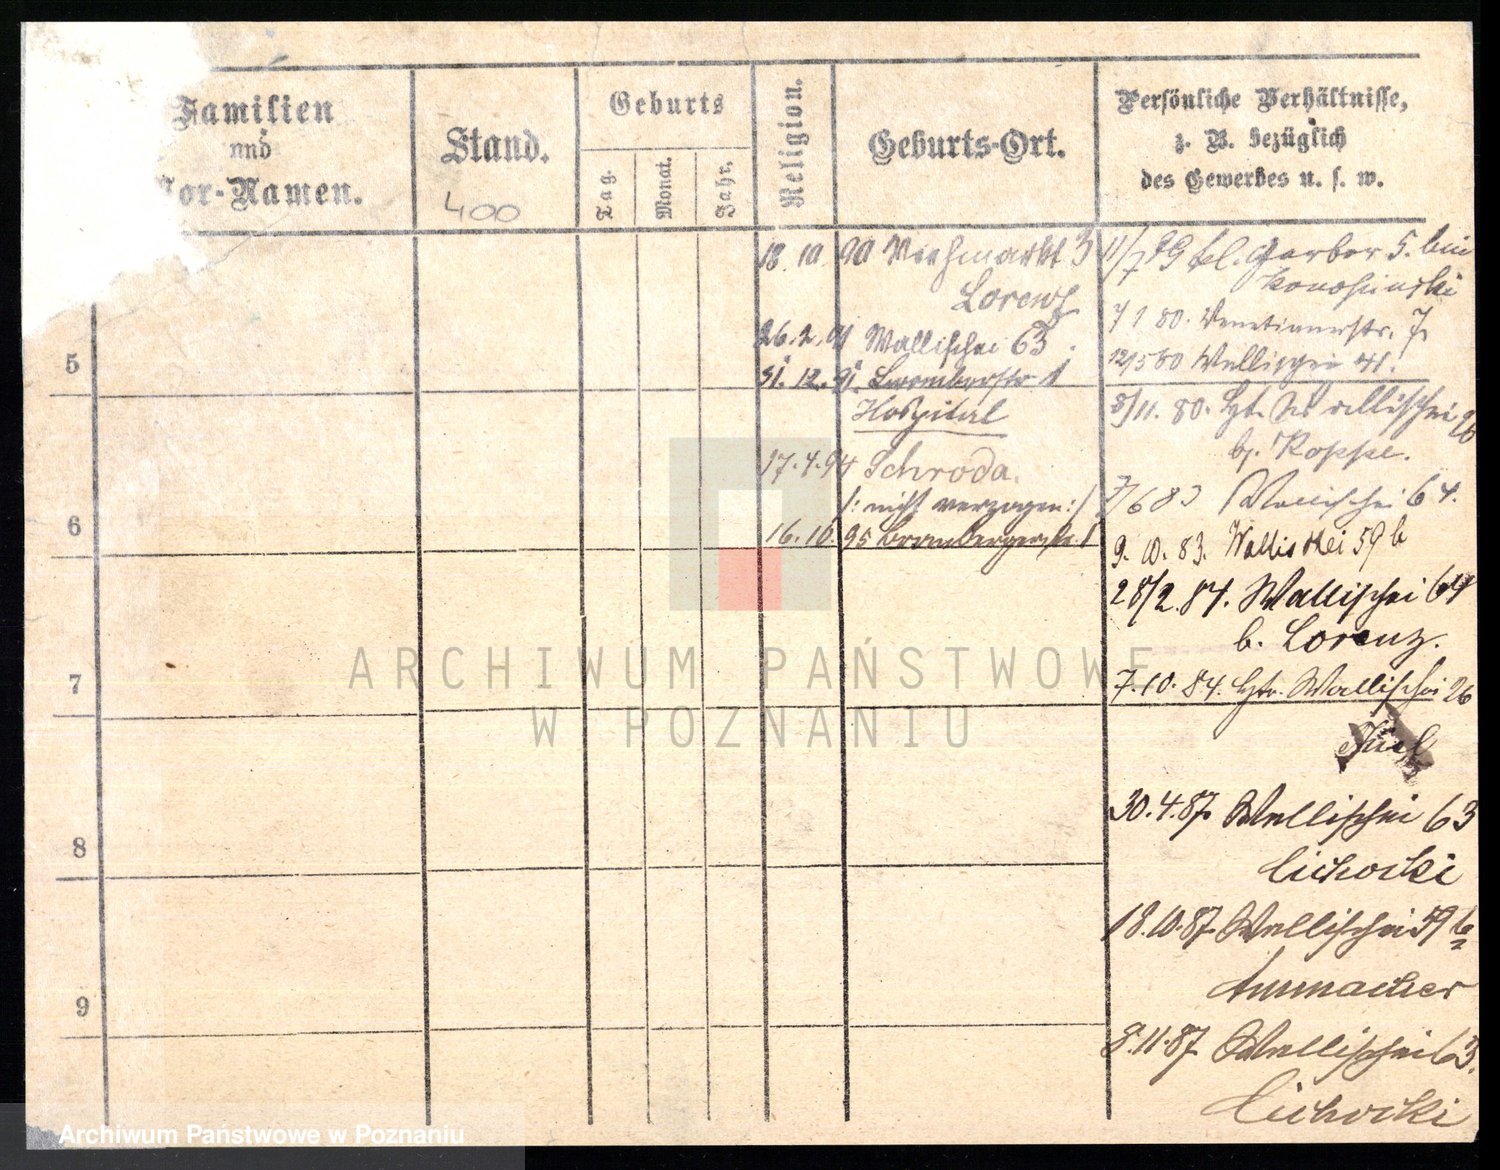 Familien
und
Vor-Namen.
Stand.
400
Geburts
Tag.
Monat.
Jahr.
Religion.
Geburts-Ort.
Persönliche Verhältnisse,
z. B. bezüglich
des Gewerbes u. s. w.
5
6
7
8
9
18. 10. 90 Viehmarkt 3
Lorenz
26. 2. 91 Wallischei 63
31. 12. 91.
Hospital
17. 4. 94 Schroda.
/: nicht verzogen :/
16. 10. 95 Brombergerstr. 1
11/7 79 kl. Gerber 5. bei
7 1 80. Venetianerstr. 7.
12/5 80 Wallischei 41.
8/11. 80. Wallischei 96
b. Koppe.
7/6 83 Wallischei 64.
9. 10. 83. Wallischei 59 b
28/2. 84. Wallischei 64
b. Lorenz.
7. 10. 84. Wallischei 26
30. 4. 87. Wallischei 63
Cichocki
18. 10. 87. Wallischei 59 b
Ammacher
8. 11. 87. Wallischei 63.
Cichocki
ARCHIWUM PAŃSTWOWE
W POZNANIU
Archiwum Państwowe w Poznaniu